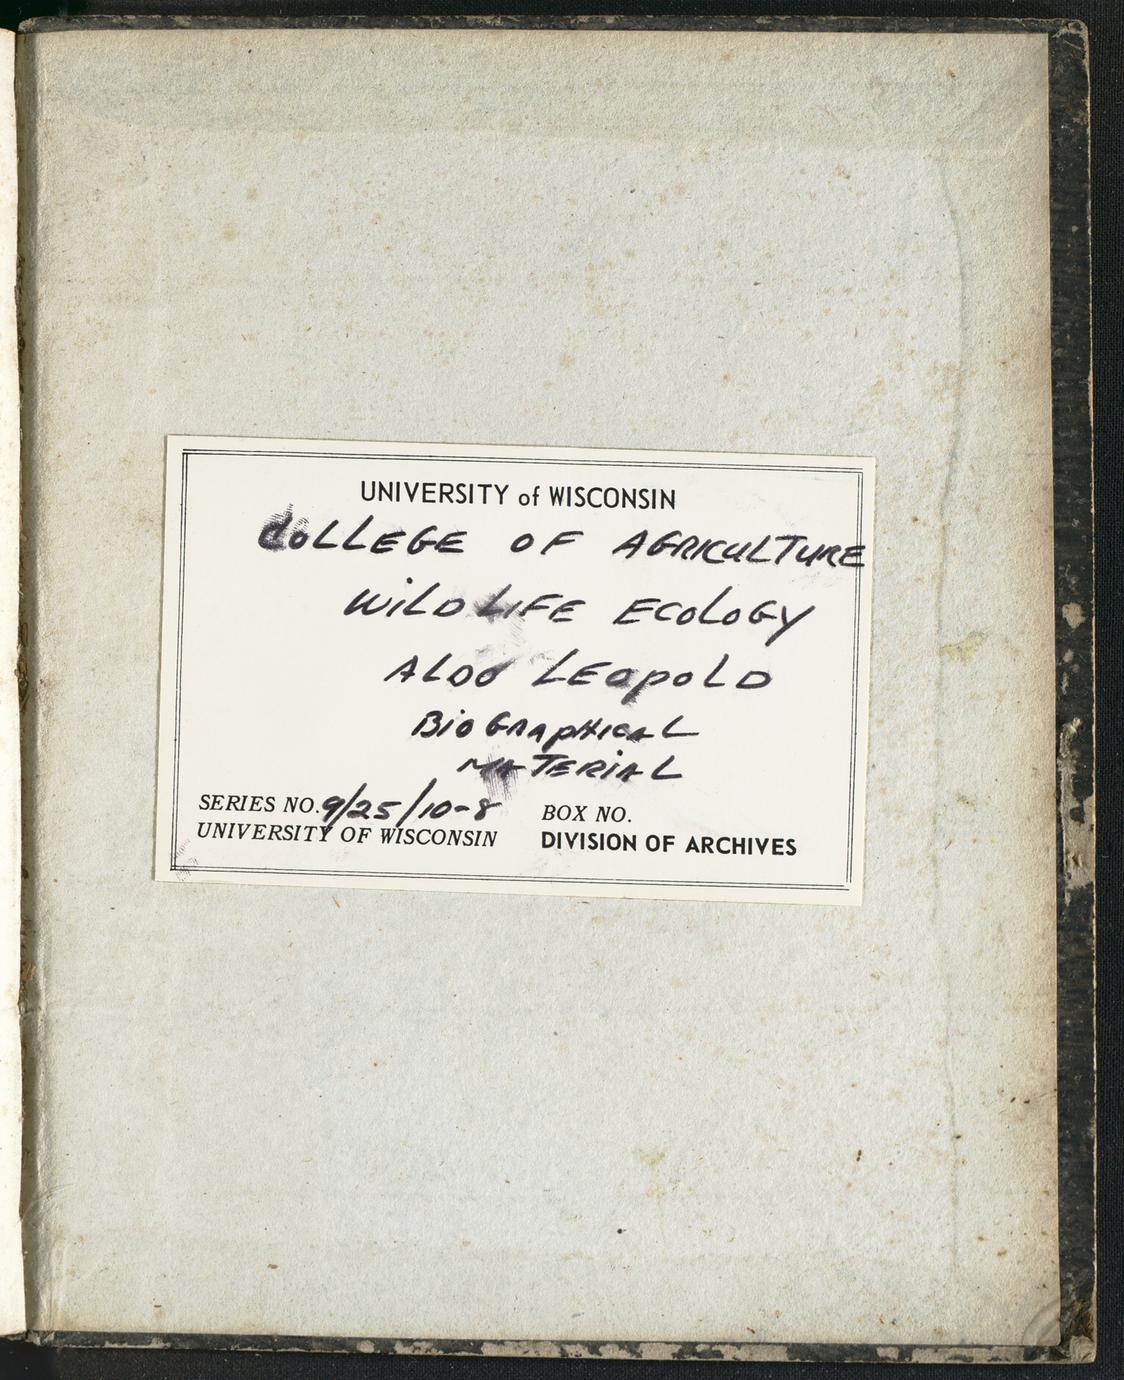 UNIVERSITY of WISCONSIN
COLLEGE OF AGRICULTURE
WILDLIFE ECOLOGY
ALDO LEOPOLD
BIOGRAPHICAL
MATERIAL
SERIES NO. 9/25/10-8 BOX NO.
UNIVERSITY OF WISCONSIN DIVISION OF ARCHIVES